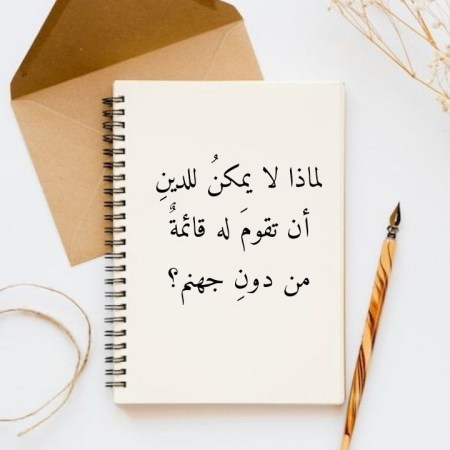 لماذا لا يمكنُ للدينِ
أن تقومَ له قائمةٌ
من دونِ جهنم؟